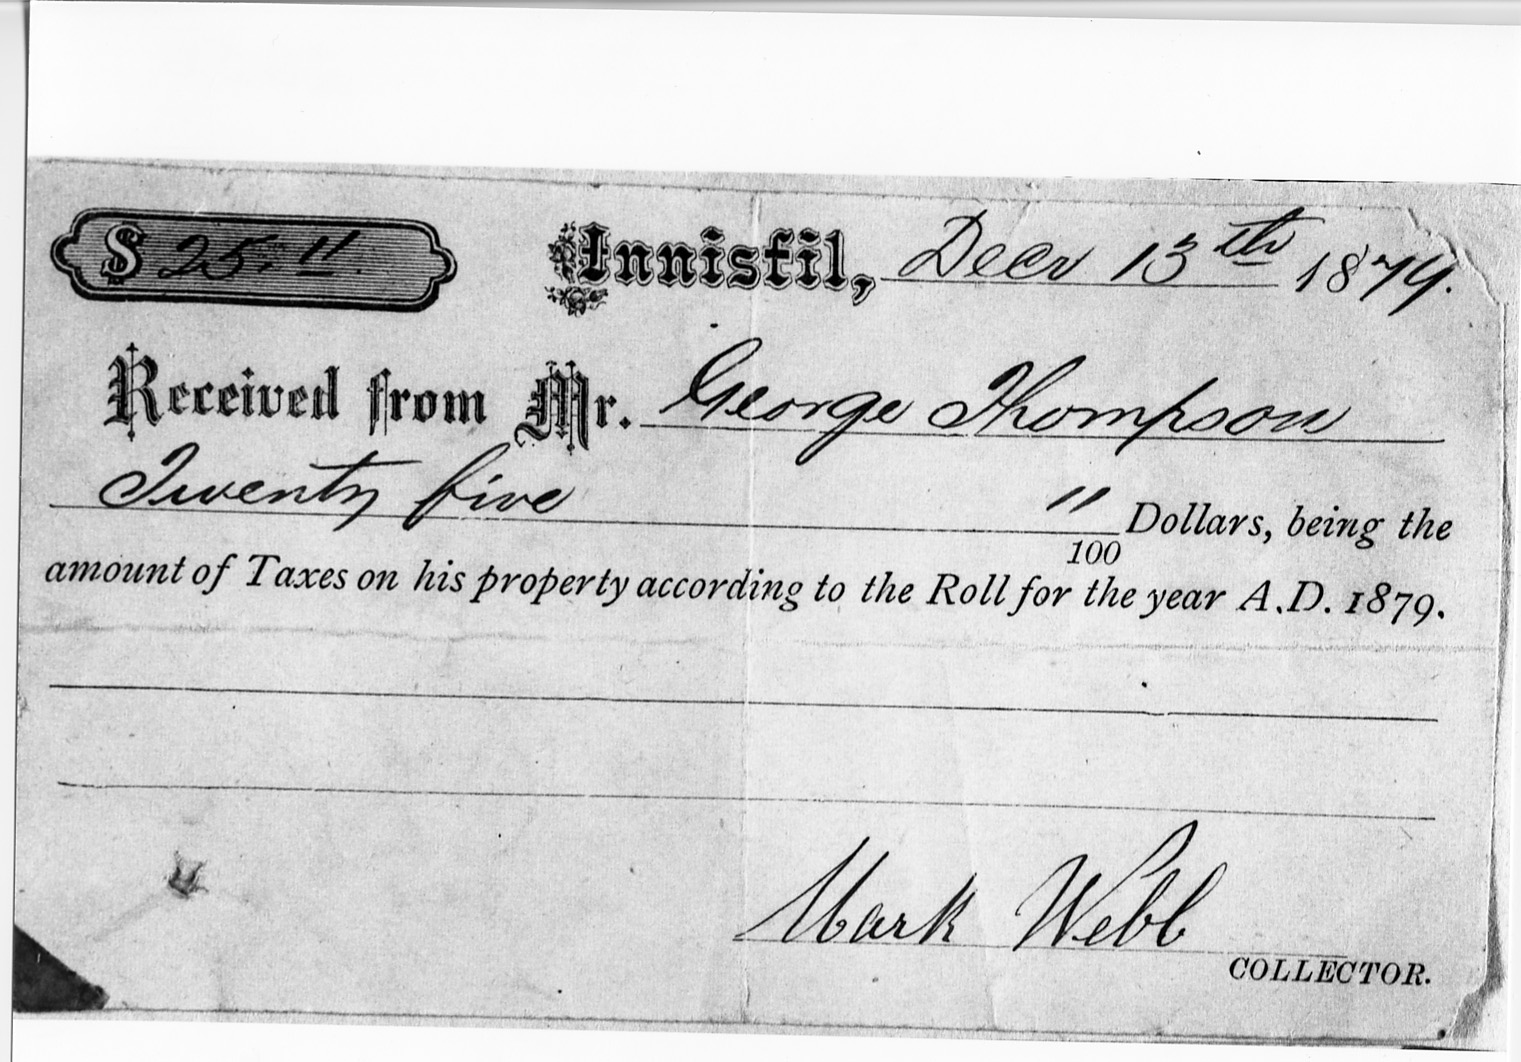 $ 25. " Innisfil, Decr 13th 1879.
Received from Mr. George Thompson
Twenty five "/100 Dollars, being the
amount of Taxes on his property according to the Roll for the year A.D. 1879.
Mark Webb
COLLECTOR.